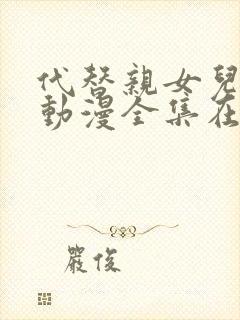 代替親女兒
動漫全集在
嚴俊